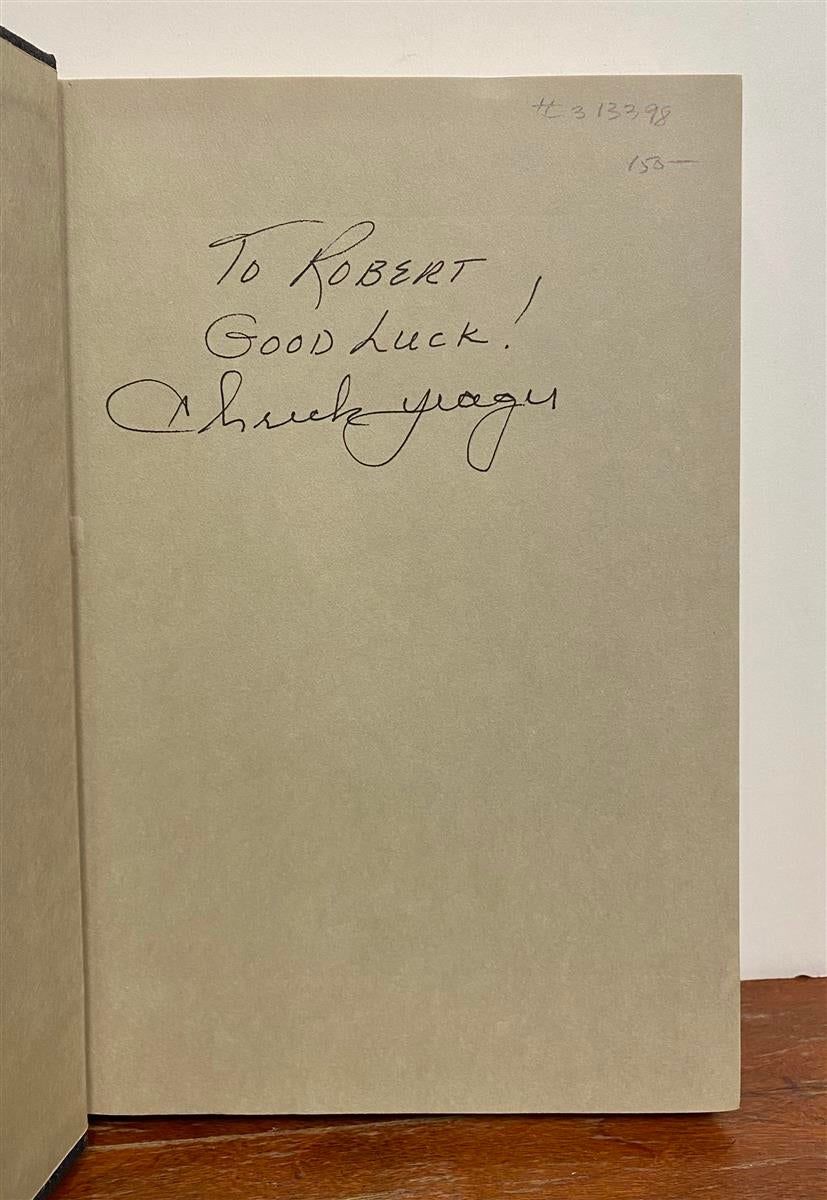 # 313398
150—
To ROBERT
GOOD LUCK!
Chuck Yeager